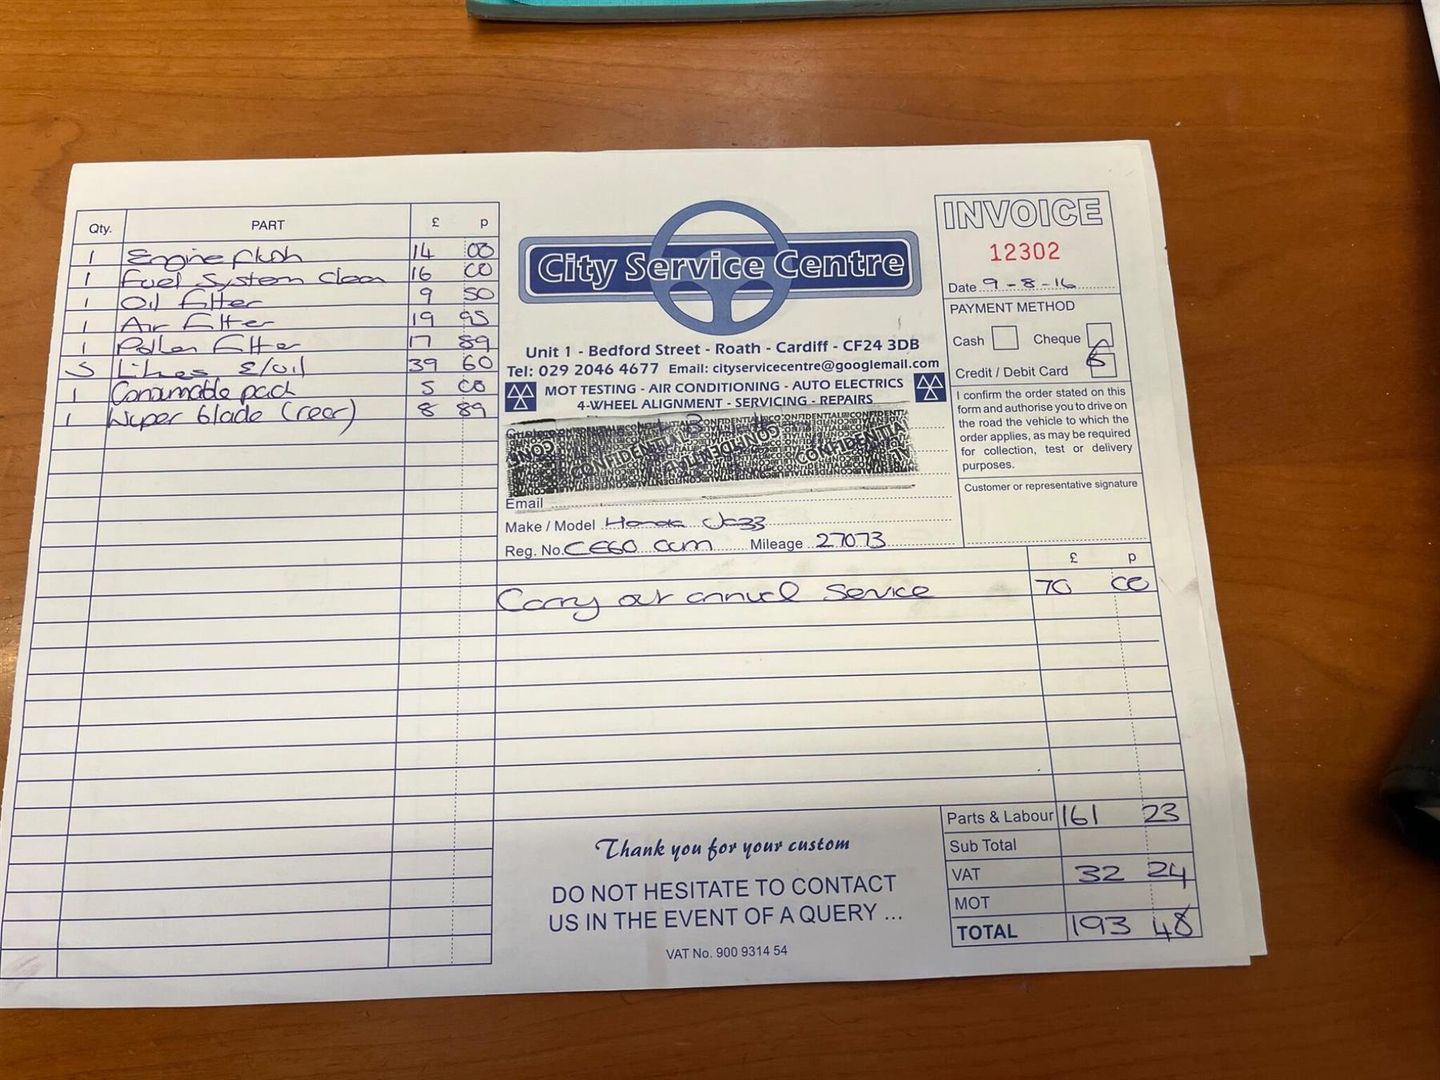 Qty. PART £ p
1 Engine flush 14 00
1 Fuel System Clean 16 00
1 Oil filter 9 50
1 Air filter 19 95
1 Pollen filter 17 89
5 Litres E/oil 39 60
1 Consumable pack 5 00
1 Wiper blade (rear) 8 89
City Service Centre
Unit 1 - Bedford Street - Roath - Cardiff - CF24 3DB
Tel: 029 2046 4677 Email: cityservicecentre@googlemail.com
MOT TESTING - AIR CONDITIONING - AUTO ELECTRICS
4-WHEEL ALIGNMENT - SERVICING - REPAIRS
CONFIDENTIAL CONFIDENTIAL CONFIDENTIAL
Email
Make / Model Honda Jazz
Reg. No. CE60 OCM Mileage 27073
INVOICE
12302
Date 9-8-16
PAYMENT METHOD
Cash Cheque
Credit / Debit Card
I confirm the order stated on this
form and authorise you to drive on
the road the vehicle to which the
order applies, as may be required
for collection, test or delivery
purposes.
Customer or representative signature
£ p
Carry out annual Service 70 00
Parts & Labour 161 23
Sub Total
VAT 32 24
MOT
TOTAL 193 48
Thank you for your custom
DO NOT HESITATE TO CONTACT
US IN THE EVENT OF A QUERY ...
VAT No. 900 9314 54